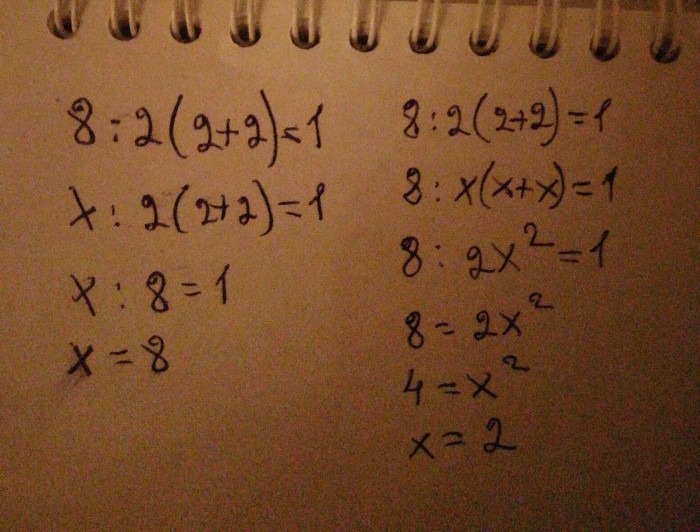 8:2(2+2)=1
x:2(2+2)=1
x:8=1
x=8
8:2(2+2)=1
8:x(x+x)=1
8:2x²=1
8=2x²
4=x²
x=2